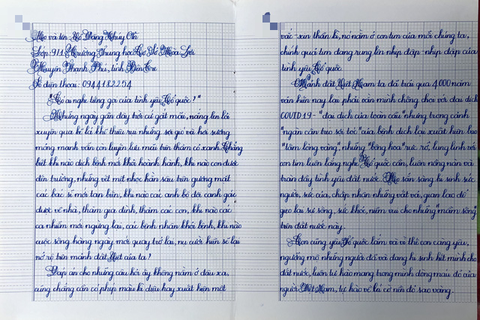 Họ và tên: Lê Đăng Thùy Chi
Lớp: 9/1, Trường Trung học Cơ Sở Hòa Lợi
Huyện Thạnh Phú, tỉnh Bến Tre
Số điện thoại: 0944182254
"Em có nghe tiếng gọi của tình yêu Tổ quốc?"
Những ngày gần đây trời có gắt mấy, nắng len lỏi
xuyên qua kẽ lá khô thiếu nhưng sợi gió và hơi sương
mỏng manh vẫn còn luyến lưu mãi trên thảm cỏ xanh.
khi nào dịch bệnh mới khởi hoành hành, khi nào con được
đến trường, những vệt mệt nhọc hằn sâu trên gương mặt
các bác sĩ mới tan biến, khi nào các anh bộ đội canh gác
được về nhà, thăm gia đình, thăm các con, khi nào các
ca nhiễm mới ngừng lại, các bệnh nhân khỏi bệnh, khi nào
cuộc sống hằng ngày mới quay trở lại, nụ cười hiền sẽ lại
nở rộ trên mảnh đất Việt của ta?
Đáp án cho những câu hỏi ấy không nằm ở đâu xa,
cũng chẳng cần có phép màu kì diệu hay xuất hiện một
vài: xin thần kì, nó nằm ở con tim của mỗi chúng ta,
chính quả tim đang rung lên nhịp đập - nhịp đập của
tình yêu Tổ quốc.
Mảnh đất Việt Nam ta đã trải qua 4000 năm
văn hiến nay lại phải oằn mình chống chọi với đại dịch
COVID 19 - "đại dịch của toàn cầu" nhưng trong cảnh
"ngàn cân treo sợi tóc" của bệnh dịch lại xuất hiện lên
"tấm lòng vàng", những "bông hoa" rực rỡ, lung linh với
con tim luôn lắng nghe Tổ quốc cần, luôn nóng nàn và
tràn đầy tình yêu đất nước. Họ sẵn sàng hi sinh sức
người, sức của, chấp nhận những vất vả, gian lao để
gieo lại sự sống, sức khỏe, niềm vui cho những "mầm sống"
trên đất nước này.
Con cũng yêu Tổ quốc lắm và vì thế con càng yêu,
ngưỡng mộ những người đã và đang hi sinh hết mình cho
đất nước, luôn tự hào mang trong mình dòng máu đỏ của
người Việt Nam, tự hào về lá cờ nền đỏ sao vàng.